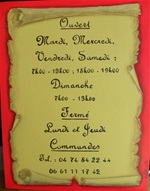 Ouvert
Mardi, Mercredi,
Vendredi, Samedi :
7h00 - 12h00 ; 15h00 - 19h00
Dimanche
7h00 - 13h00
Fermé
Lundi et Jeudi
Commandes
Tel. : 04 74 84 22 44
06 61 11 17 42